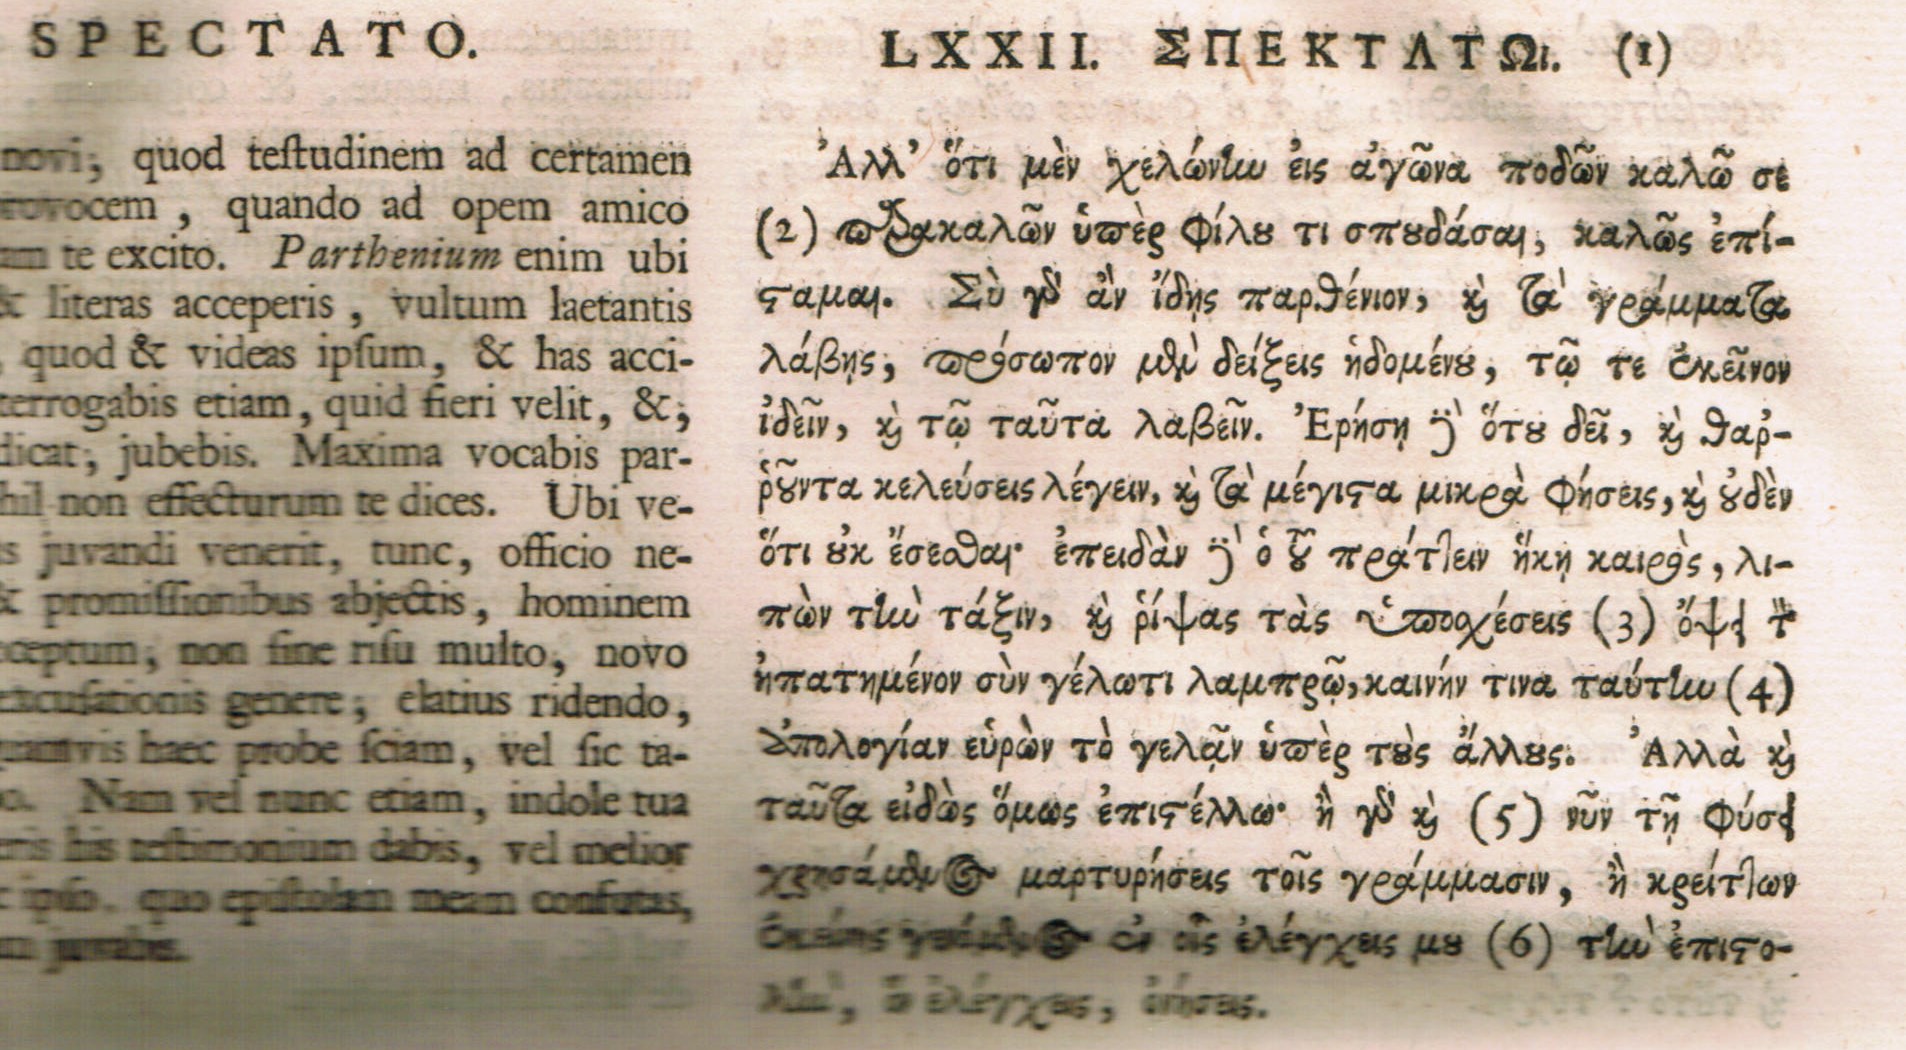 SPECTATO.
novi, quod testudinem ad certamen
provocem, quando ad opem amico
te excito. Parthenium enim ubi
& literas acceperis, vultum laetantis
quod & videas ipsum, & has acci-
terrogabis etiam, quid fieri velit, &,
dicat, jubebis. Maxima vocabis par-
hil non effecturum te dices. Ubi ve-
juvandi venerit, tunc, officio ne-
& promissionibus abjectis, hominem
ceptum, non sine risu multo, novo
excusationis genere; elatius ridendo,
quamvis haec probe sciam, vel sic ta-
Nam vel nunc etiam, indole tua
his testimonium dabis, vel melior
ipso, quo epistolam meam confutas,
juvabis.
LXXII. ΣΠΕΚΤΑΤΩι. (1)
Ἀλλ’ ὅτι μὲν χελώνην εἰς ἀγῶνα ποδῶν καλῶ σε
(2) παρακαλῶν ὑπὲρ φίλου τι σπουδάσαι, καλῶς ἐπί-
σταμαι. Σὺ γὰρ ἂν ἴδῃς παρθένιον, καὶ τὰ γράμματα
λάβῃς, πρόσωπον μὲν δείξεις ἡδομένου, τῷ τε ἐκεῖνον
ἰδεῖν, καὶ τῷ ταῦτα λαβεῖν. Ἐρήσῃ δὲ ὅτου δεῖ, καὶ θαῤ-
ῥοῦντα κελεύσεις λέγειν, καὶ τὰ μέγιστα μικρὰ φήσεις, καὶ οὐδὲν
ὅτι οὐκ ἔσεσθαι· ἐπειδὰν δὲ ὁ τοῦ πράττειν ἥκῃ καιρὸς, λι-
πὼν τὴν τάξιν, καὶ ῥίψας τὰς ὑποσχέσεις (3) ὄψει τὸν
ἠπατημένον σὺν γέλωτι λαμπρῷ, καινήν τινα ταύτην (4)
ἀπολογίαν εὑρὼν τὸ γελᾷν ὑπὲρ τοὺς ἄλλους. Ἀλλὰ καὶ
ταῦτα εἰδὼς ὅμως ἐπιστέλλω· ἢ γὰρ καὶ (5) νῦν τῇ φύσει
χρησάμενος μαρτυρήσεις τοῖς γράμμασιν, ἢ κρείττων
ἐκείνης γενόμενος ἐν οἷς ἐλέγχεις μου (6) τὴν ἐπιστο-
λὴν, ἐλέγχεις, ὀνήσεις.